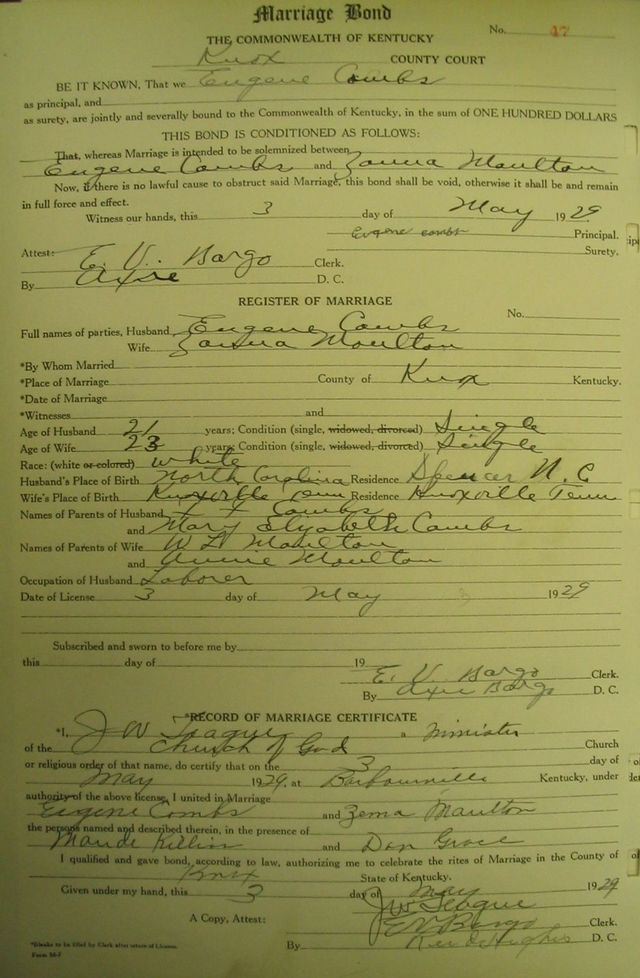 Marriage Bond
No. 47
THE COMMONWEALTH OF KENTUCKY
Knox COUNTY COURT
BE IT KNOWN, That we Eugene Combs
as principal, and
as surety, are jointly and severally bound to the Commonwealth of Kentucky, in the sum of ONE HUNDRED DOLLARS
THIS BOND IS CONDITIONED AS FOLLOWS:
That, whereas Marriage is intended to be solemnized between
Eugene Combs and Moulton
Now, if there is no lawful cause to obstruct said Marriage, this bond shall be void, otherwise it shall be and remain
in full force and effect.
Witness our hands, this 3 day of May 1929
Eugene Combs Principal.
Surety.
Attest:
E. V. Bargo Clerk.
By D. C.
REGISTER OF MARRIAGE
No.
Full names of parties, Husband Eugene Combs
Wife Moulton
*By Whom Married
*Place of Marriage County of Knox Kentucky.
*Date of Marriage
*Witnesses and
Age of Husband 21 years; Condition (single, widowed, divorced) Single
Age of Wife 23 years; Condition (single, widowed, divorced) Single
Race: (white or colored) white
Husband's Place of Birth North Carolina Residence Spencer N. C
Wife's Place of Birth Knoxville Tenn Residence Knoxville Tenn
Names of Parents of Husband Combs
and Mary Elyabeth Combs
Names of Parents of Wife Moulton
and Annie Moulton
Occupation of Husband Laborer
Date of License 3 day of May 1929
Subscribed and sworn to before me by
this day of 19
E. V. Bargo Clerk.
By Bargo D. C.
*RECORD OF MARRIAGE CERTIFICATE
*I, J W Teague a Minister
of the Church of God Church
or religious order of that name, do certify that on the 3 day of
May 1929, at Barbourville Kentucky, under
authority of the above license, I united in Marriage
Eugene Combs and Zema Moulton
the persons named and described therein, in the presence of
Maude Killion and Dan Grace
I qualified and gave bond, according to law, authorizing me to celebrate the rites of Marriage in the County of
Knox State of Kentucky.
Given under my hand, this 3 day of May 1929
J W Teague
A Copy, Attest: E V Bargo Clerk.
By Hughes D. C.
*Blanks to be filled by Clerk after return of License.
Form 56-F